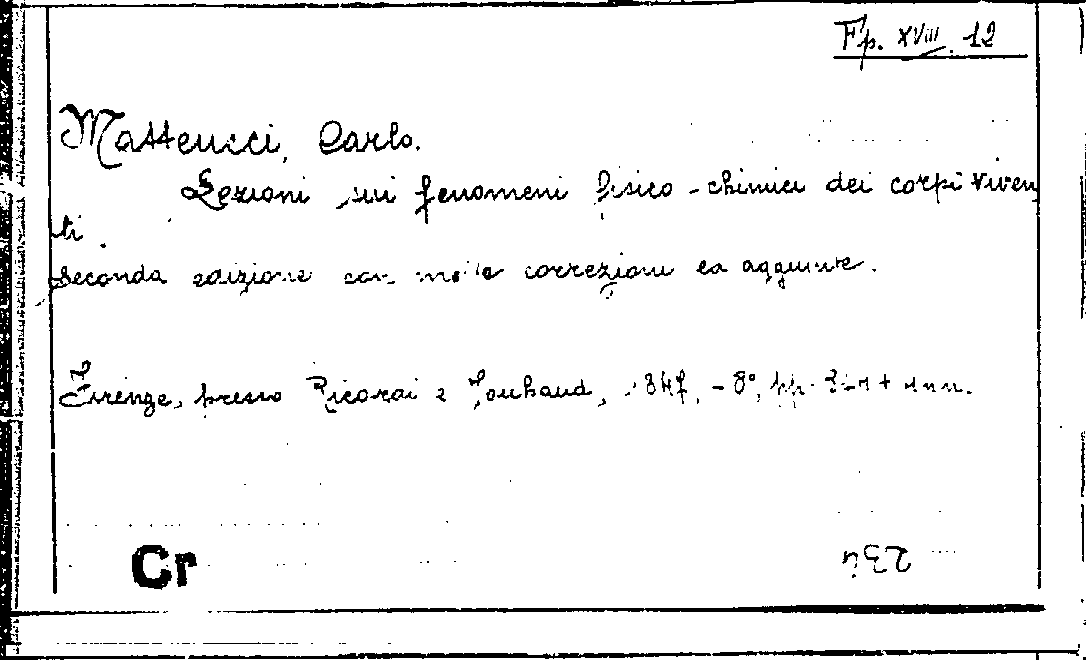 Fp. XVIII. 12
Matteucci, Carlo.
Lezioni sui fenomeni fisico-chimici dei corpi viven
ti.
Seconda edizione con molte correzioni ed aggiunte.
Firenze, presso Ricordi e Jouhaud, 1847, - 8°, pp. + 1 nn.
Cr